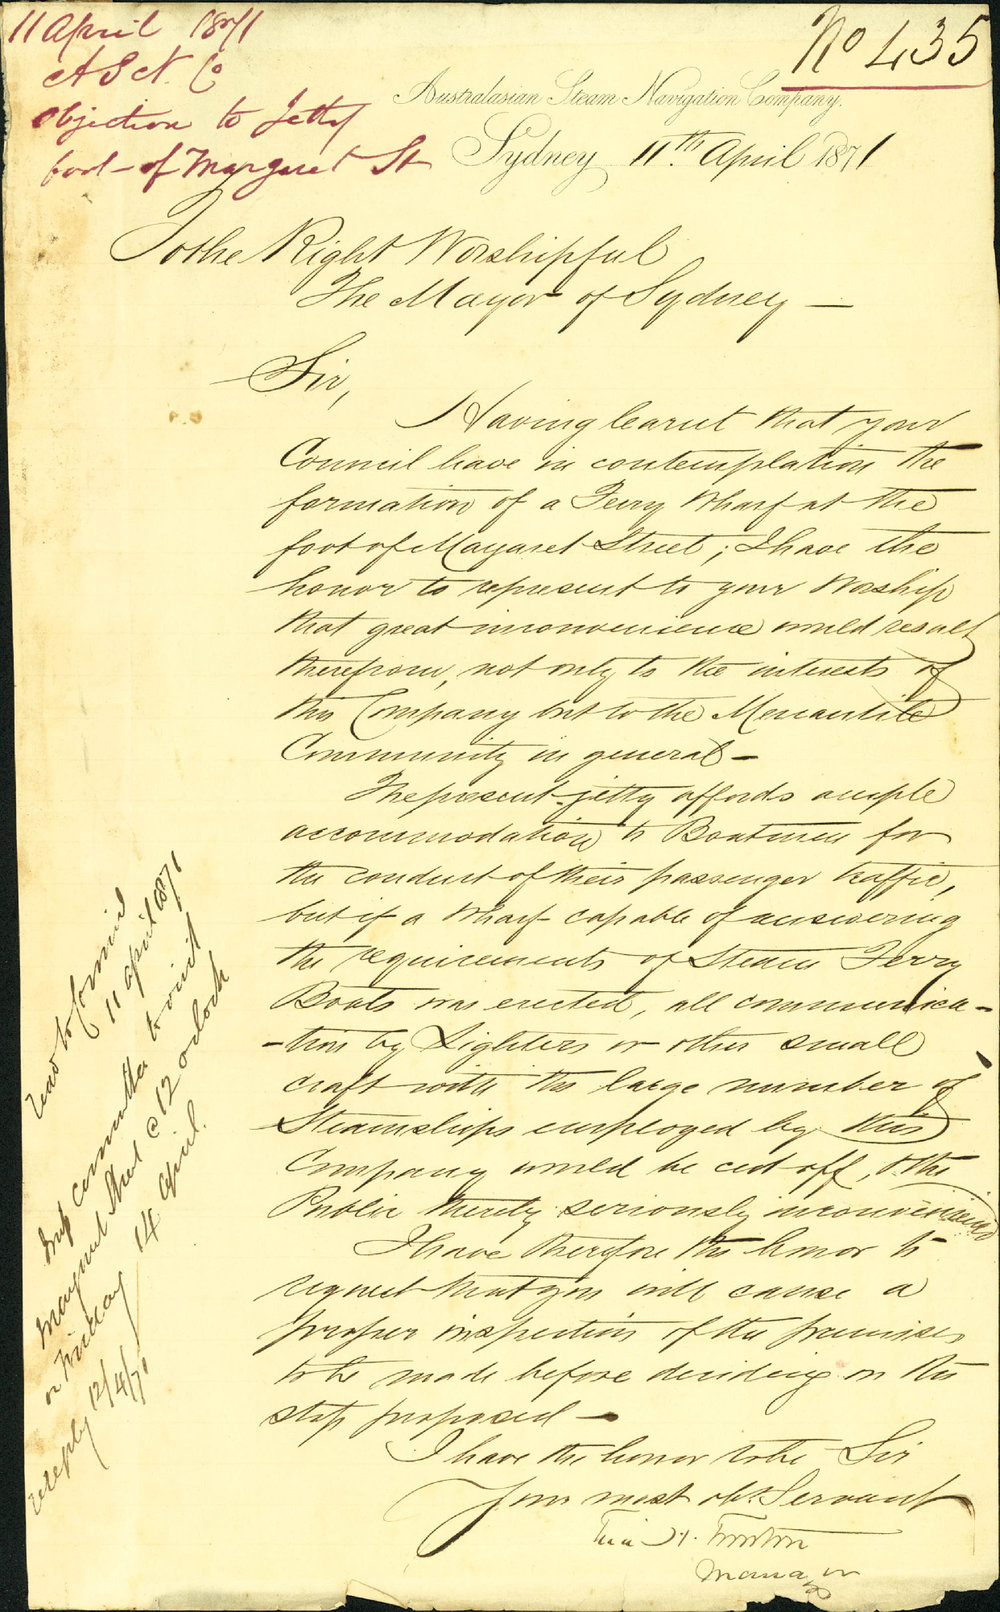 11 April 1871
A S N. Co
Objection to Jetty
foot of Margaret St
No 435
Australasian Steam Navigation Company.
Sydney 11th April 1871
To the Right Worshipful
The Mayor of Sydney —
Sir,
Having learnt that your
Council have in contemplation the
formation of a Ferry Wharf at the
foot of Margaret Street; I have the
honor to represent to your Worship
that great inconvenience would result
therefrom, not only to the interests of
this Company but to the Mercantile
Community in general —
The present jetty affords ample
accommodation to Boatmen for
the conduct of their passenger traffic,
but if a Wharf capable of answering
the requirements of Steam Ferry
Boats was erected, all communica-
-tion by Lighters or other small
craft with the large number of
Steamships employed by this
Company would be cut off, & the
Public thereby seriously inconvenienced
I have therefore the honor to
request that you will cause a
proper inspection of the premises
to be made before deciding on the
step proposed —
I have the honor to be Sir
Your most obt. Servant
H.
Manager
read to Council
11 April 1871
Imp committee to visit
Margaret Street @ 12 oclock
on Friday 14 April.
reply 12/4/71